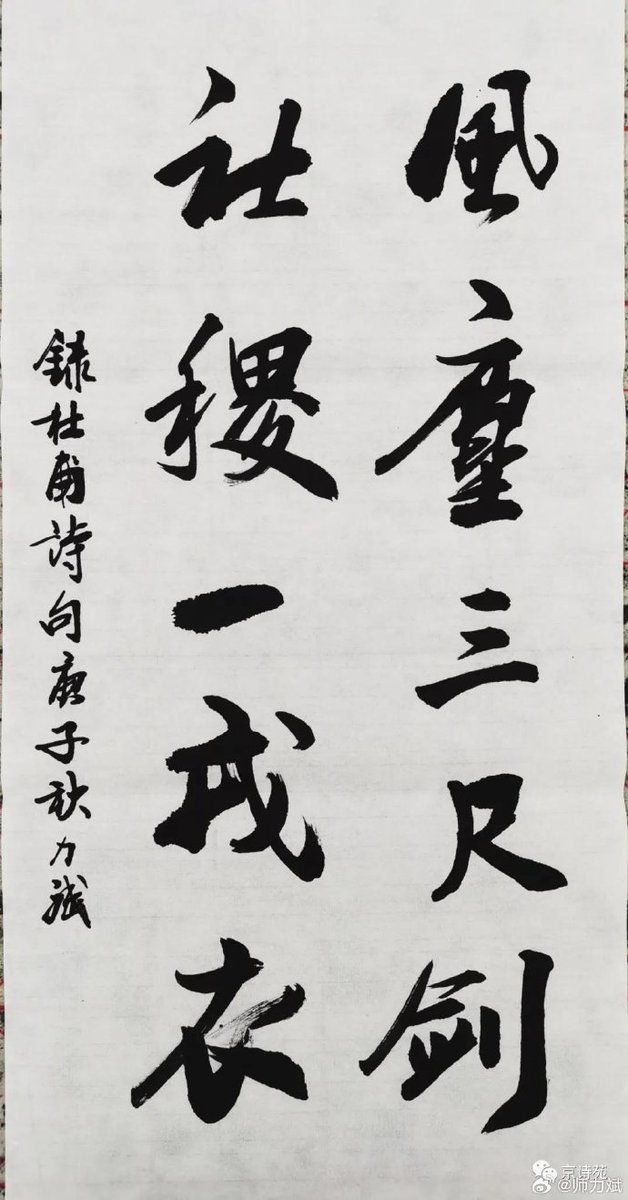 風塵三尺劍
社稷一戎衣
録杜甫詩句庚子秋力斌
京诗苑
@师力斌